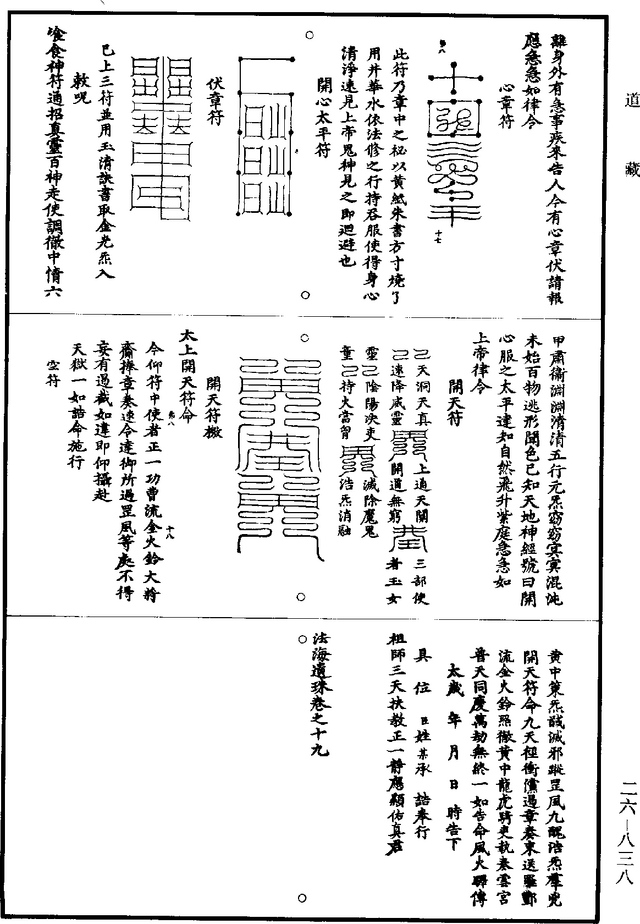 道藏
離身外有急事疾來告人今有心章伏請報
應急急如律令
心章符
弟八
十七
此符乃章中之秘以黃紙朱書方寸燒了
用井華水依法修之行持吞服使得身心
清淨速見上帝鬼神見之即迴避也
開心太平符
伏章符
已上三符並用玉清訣書取金光炁入
敕呪
飱食神符通招真靈百神走使調徹中情六
甲肅衛淵淵清清五行元炁窈窈冥冥混沌
未始百物逃形聞色已知天地神經號曰開
心服之太平達知自然飛升紫庭急急如
上帝律令
開天符
天洞天真
上通天關
三部使
速降威靈
開道無窮
者玉女
靈
陰陽決吏
滅除魔鬼
童
持火當胷
浩炁消融
開天符檄
太上開天符命
弟八
十八
今仰符中使者正一功曹流金火鈴大將
齎捧章奏速令達御所過罡風等處不得
妄有過截如違即仰攝赴
天獄一如誥命施行
空符
黃中策炁誠滅邪蹤罡風九醜浩炁羣兇
開天符命九天徑衝儻過章奏束送羅酆
流金火鈴照徹黃中龍虎騎吏執奏雲宮
普天同慶萬劫無終一如告命風火驛傳
太歲 年 月 日 時告下
具位 臣姓某承 誥奉行
祖師三天扶教正一靜應顯佑真君
法海遺珠卷之十九
二六—八三八